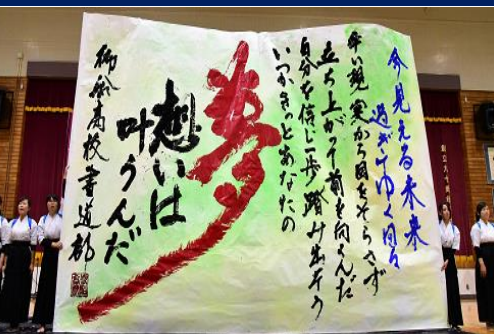 今見える未来
過ぎてゆく日々
辛い現実から目をそらさず
立ち上がって前を向くんだ
自分を信じ一歩踏み出そう
いつかきっとあなたの
夢
想いは
叶うんだ
御船高校書道部